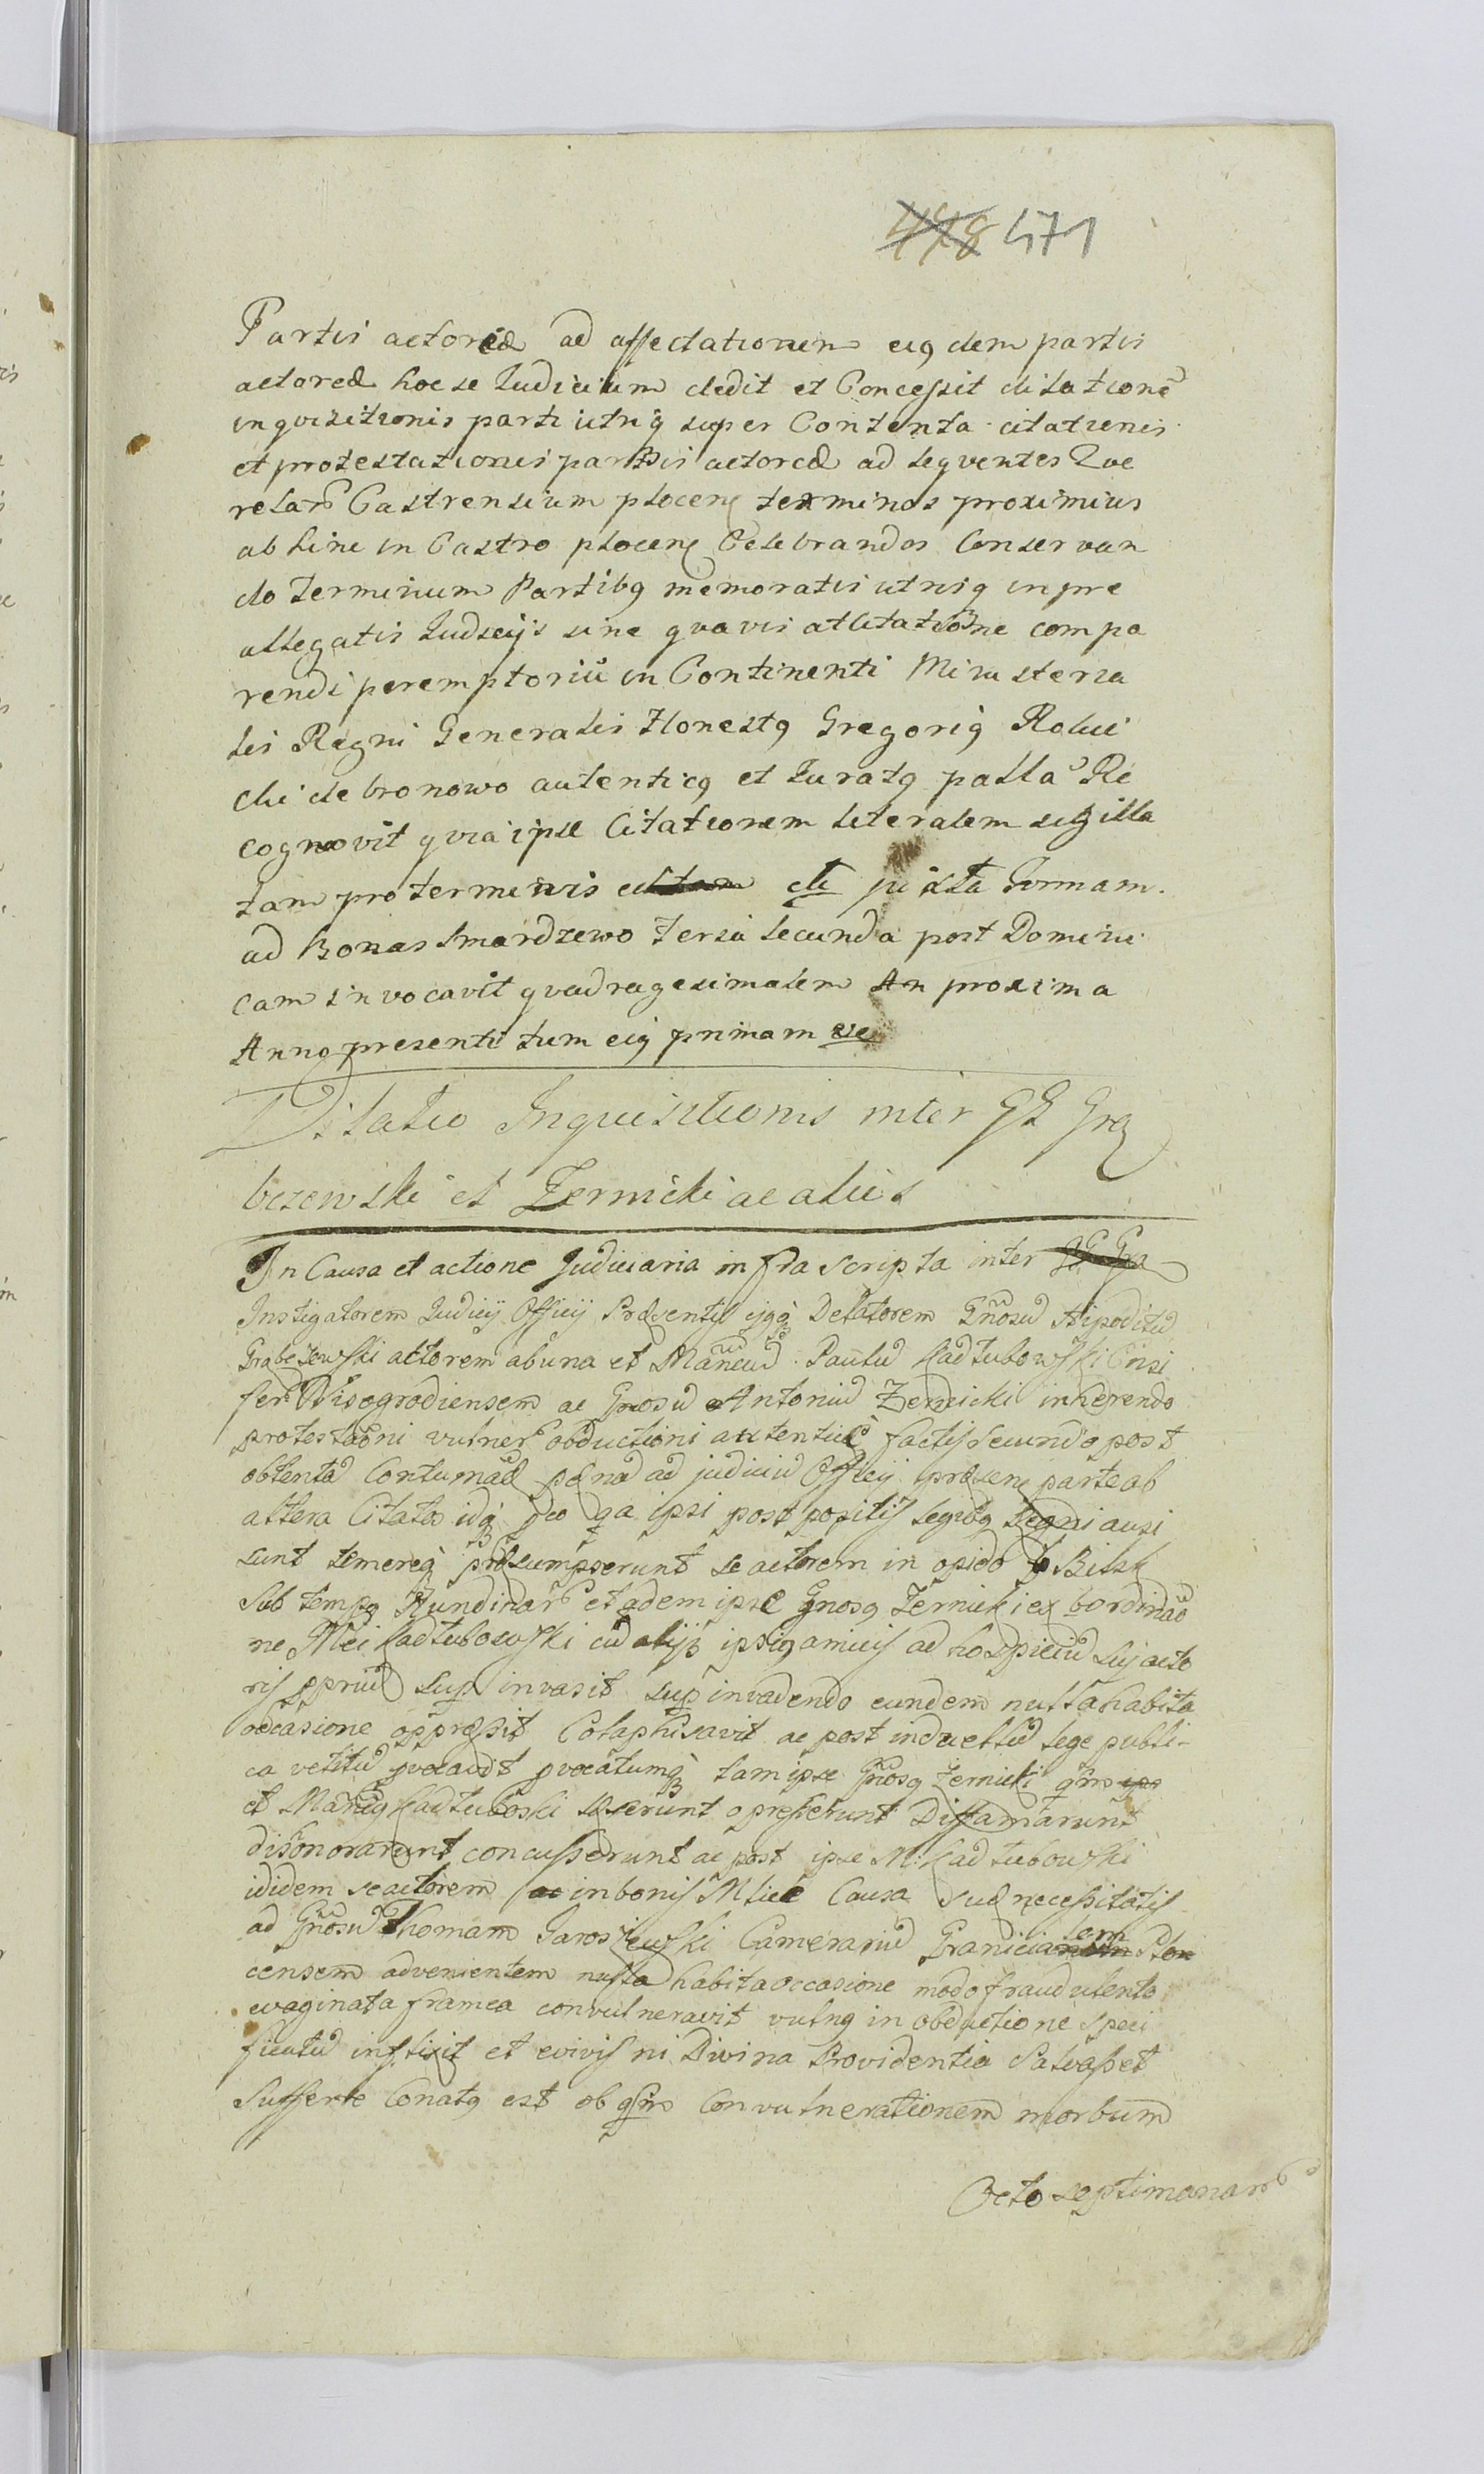 478 471
Partis actoreæ ad affectationem eiq dem partis
actoreæ hoc se Iudicium dedit et Concessit dilatione
inquisitionis parti utriq super Contenta citationis
et protestationis partis actoreæ ad sequentes Que
relar Castrensium plocen terminos proximius
ab hinc in Castro plocen Celebrandos Conservan
do terminum Partibq memoratis utrisq in pre
allegatis Iudicijs sine quavis atlitatione compa
rendi peremptoriu in Continenti Ministeria
lis Regni Generalis Honestq Gregoriq
de bronowo autenticq et Iuratq palla Re
cognovit quia ipse Citationem literalem sigilla
tam pro terminis de juxta formam
ad Bonas Smardzewo feria secunda post Domini
cam invocavit quadragesimalem An proxima
Anno presenti tum eiq primam
Dilatio Inquisitionis inter GG Gra
bczewski et Zernicki ac alios
In Causa et actione Judiciaria infra scripta inter GG Gra
Instigatorem Iudicij Officij Præsentis ejqq Delatorem Gnosu Hipolitu
Grabczewski actorem ab una et Mancu Paulu Kadlubowski Ensi
fer Wisogrodiensem ac Gnosu Antoniu Zernicki inherendo
protestaoni vulner obductioni autentice factis secundo post
obtenta Contumaæ pæna ad judiciu Officij præsen parte ab
altera Citatos idq ideo qa ipsi post positis legibq Regni ausi
sunt temereq præsumpserunt se actorem in opido Bilsk
sub tempq Nundinar etadem ipse Gnosq Zernicki ex bordinao
ne Mci Kadlubowski cu alijs ipsiq amicis ad hospiciu sui acto
ris ppriu sup invasit sup invadendo eundem nulla habita
occasione oppressit Colaphisavit ac post inductu lege publi-
ca vetitu provocavit provocatumq tam ipse Gnosq Zernicki qm
et Mancq Kadluboski læserunt opresserunt Diffamarunt
dishonorarunt concusserunt ac post ipse M: Kadlubowski
ibidem se actorem ac in bonis Mlice Causa suæ necessitatis
ad Gnosu Thomam Jaroszewski Camerariu Graniciarem Plo
censem advenientem nulla habita occasione modo fraudulento
evaginata framea convulneravit vulnq in obductione speci
ficatu inflixit et e vivis ni Divina Providentia Salvasset
Sufferre Conatq est ob qm Convulnerationem morbum
Octo septimanar